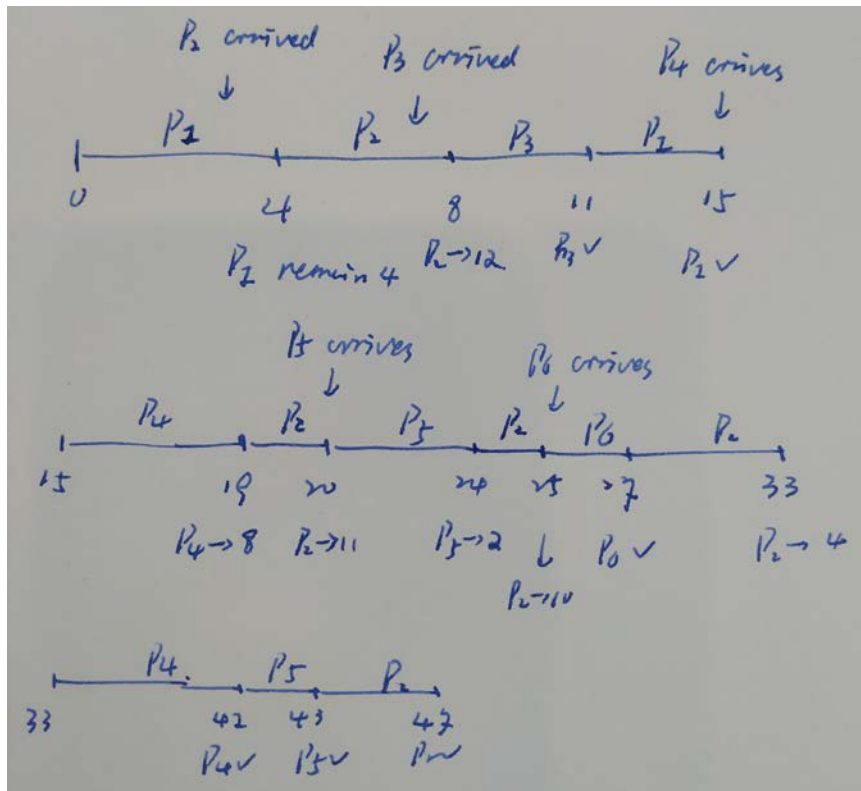 P2 arrived P3 arrived P4 arrives
↓ ↓ ↓
P1 P2 P3 P1
0 4 8 11 15
P1 remain 4 P2→12 P3 ✓ P1 ✓
P5 arrives P6 arrives
↓ ↓
P4 P2 P5 P2 P6 P2
15 19 20 24 25 27 33
P4→8 P2→11 P5→2 ↓ P6 ✓ P2→4
P2→10
P4 P5 P2
33 42 43 47
P4✓ P5✓ P2✓